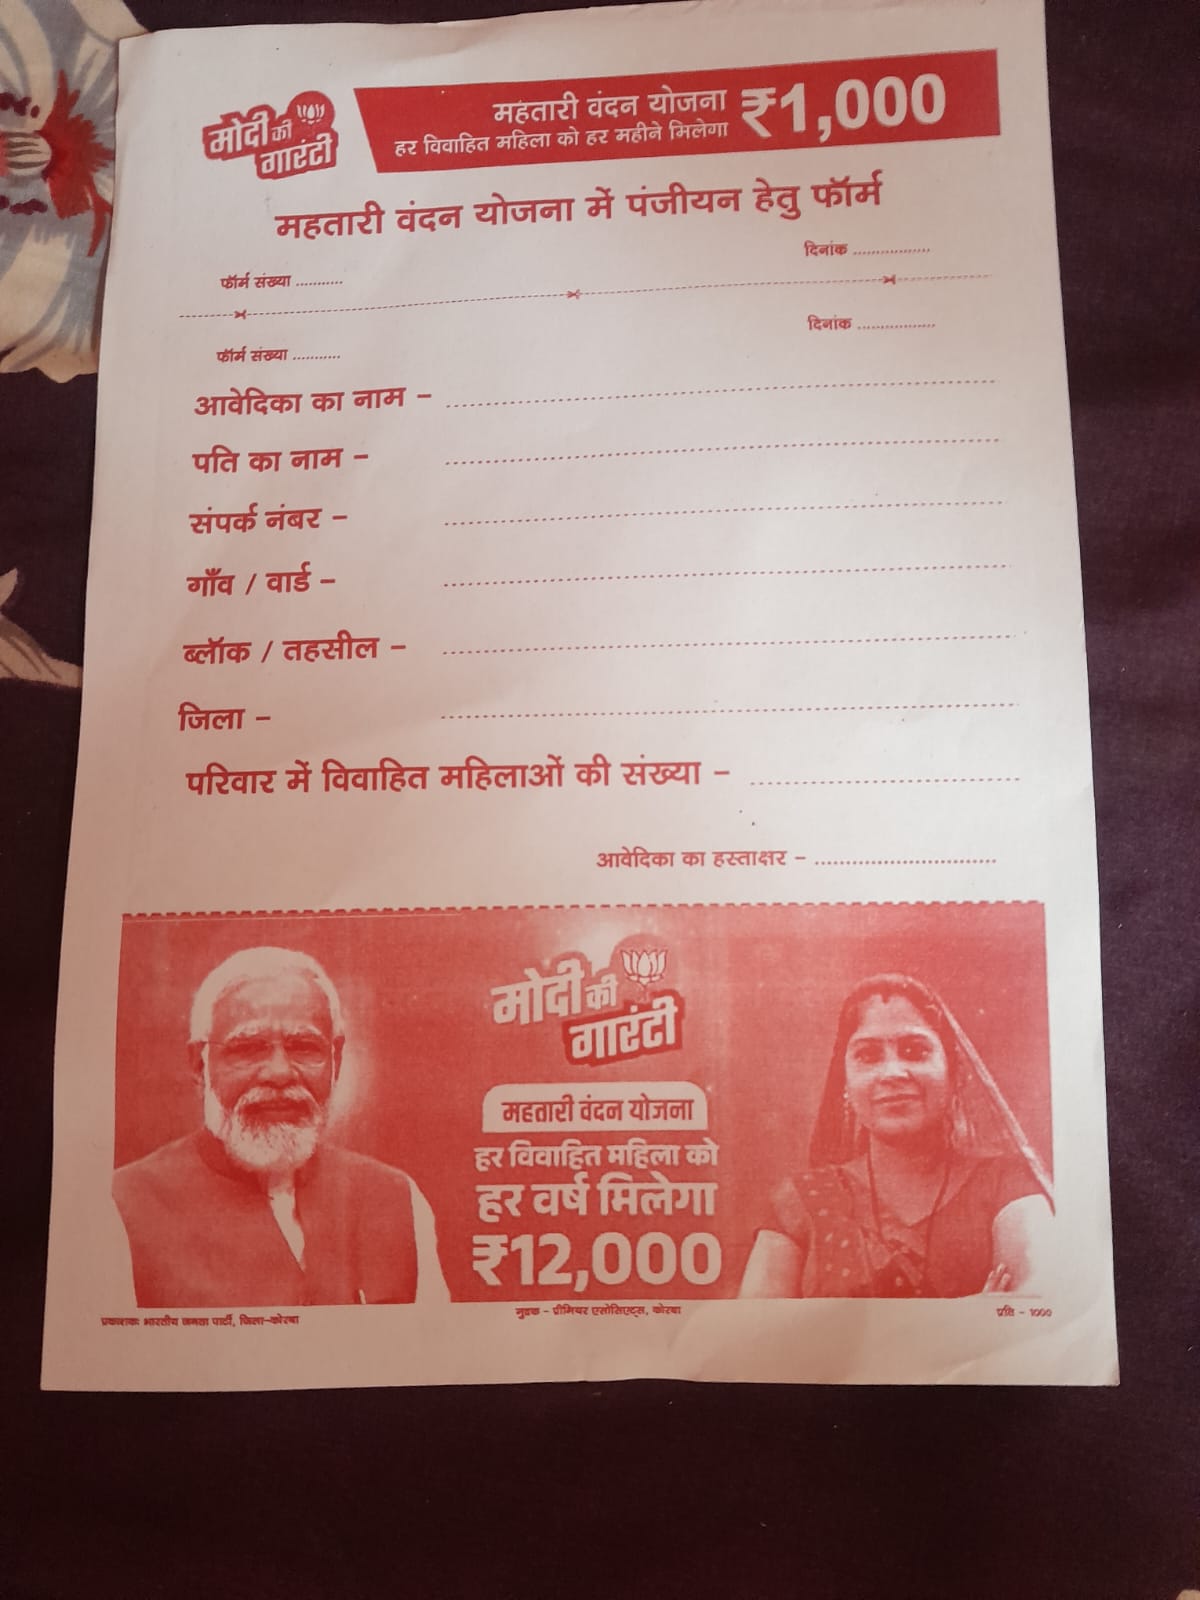 मोदी की
गारंटी
महतारी वंदन योजना
हर विवाहित महिला को हर महीने मिलेगा
₹1,000
महतारी वंदन योजना में पंजीयन हेतु फॉर्म
फॉर्म संख्या ........... दिनांक .................
फॉर्म संख्या ........... दिनांक .................
आवेदिका का नाम –
पति का नाम –
संपर्क नंबर –
गाँव / वार्ड –
ब्लॉक / तहसील –
जिला –
परिवार में विवाहित महिलाओं की संख्या –
आवेदिका का हस्ताक्षर –
मोदी की
गारंटी
महतारी वंदन योजना
हर विवाहित महिला को
हर वर्ष मिलेगा
₹12,000
प्रकाशकः भारतीय जनता पार्टी, जिला–कोरबा मुद्रक – प्रीमियर एसोसिएट्स, कोरबा प्रति – 1000